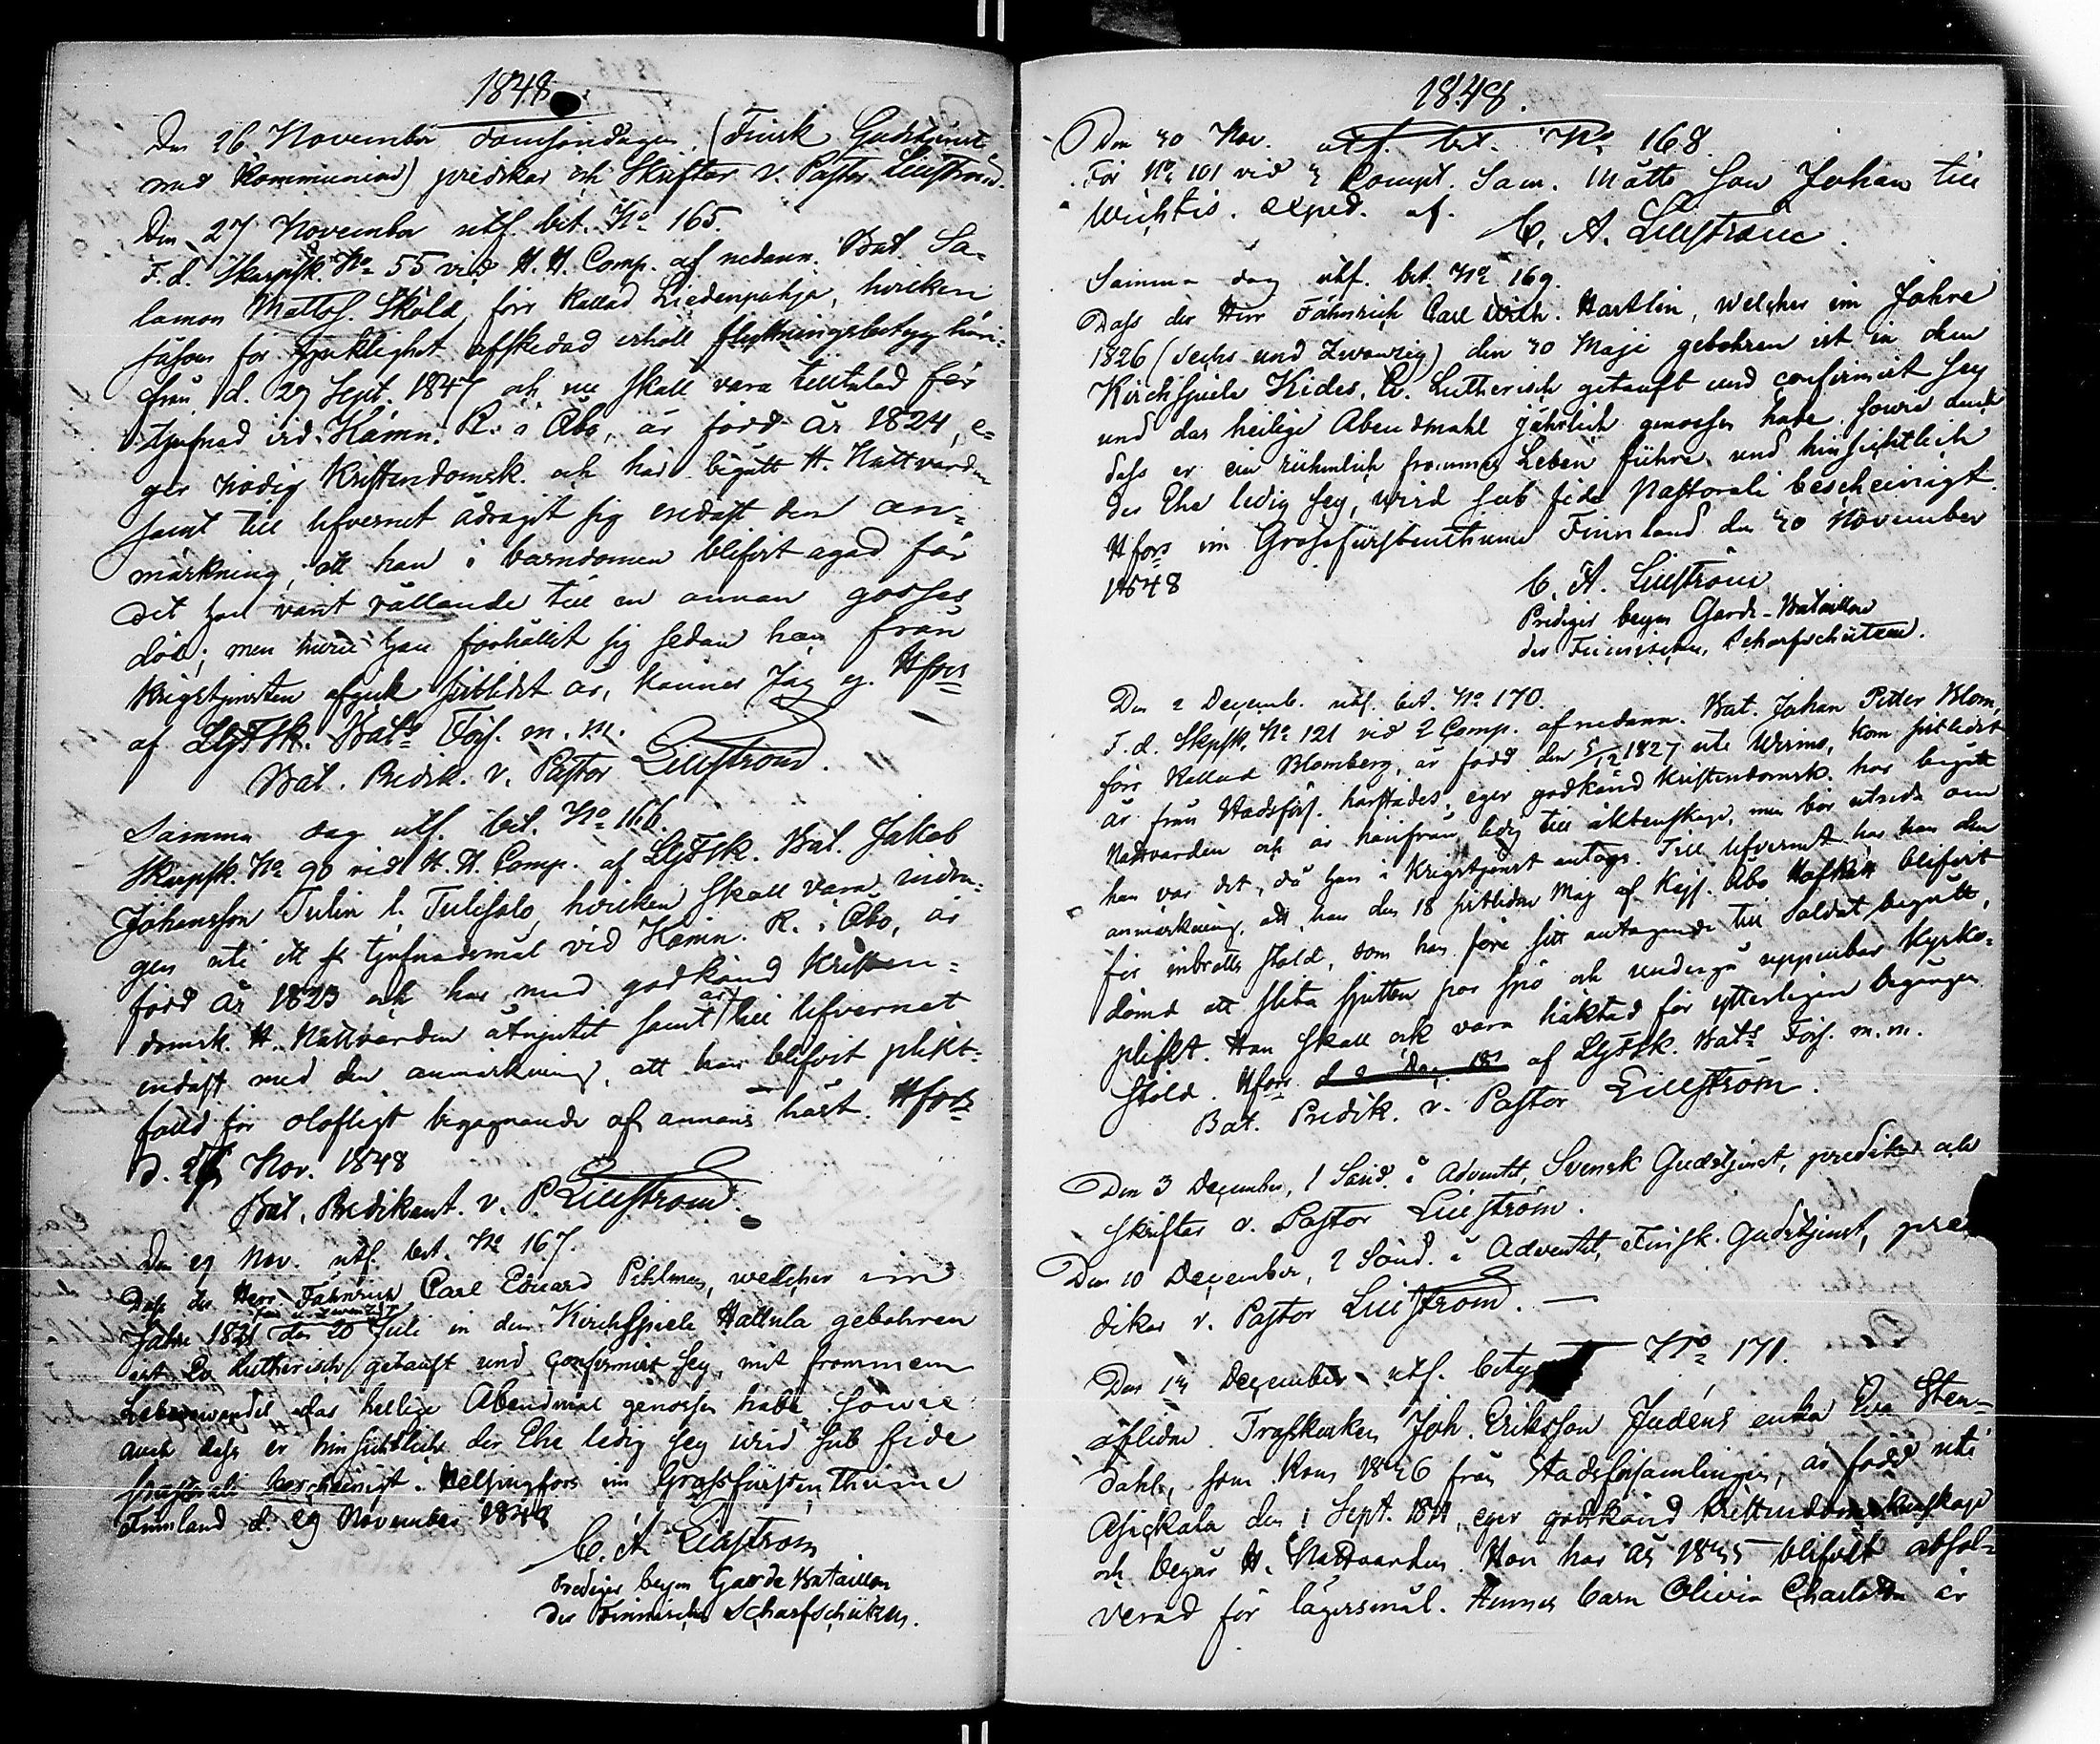 1848
Den 26 November domsöndagen, (Finsk Gudstjenst
med Kommunion) predikar och Skriftar v. Pastor Lillström.
Den 27 November utf. bet. No 165.
F. d. Skarpsk. No 55 vid H. H. Comp. af nedann. Bat. Sa-
lomon Mattss. Sköld, förr kallad Liedenpohja, hvilken
såsom för sjuklighet afskedad erhöll flyttningsbetyg häri-
från d. 29 Sept. 1847 och nu skall vara tilltalad för
tjufnad vid Kämn. R. i Åbo, är född år 1824, e-
ger nödig Kristendomsk. och har begått H. Nattvarden
samt till lefvernet ådragit sig endast den an-
märkning, att han i barndomen blifvit agad för
det han varit vållande till en annan gosses
död; men huru han förhållit sig sedan han från
Krigstjensten afgick sistlidet år, känner Jag ej. Hfors
af LGFSk. Bats Förs. m. m.
Bat. Predik. v. Pastor Lillström.
Samma dag utf. bet. No 166.
Skarpsk. No 90 vid H. H. Comp. af LGFSk. Bat. Jakob
Johansson Tulin l. Tulisalo, hvilken skall vara indra-
gen uti ett tjufnadsmål vid Kämn. R. i Åbo, är
född år 1823 och har med godkänd Kristen-
domsk. H. Nattvarden åtnjutit samt är till lefvernet
endast med den anmärkning, att han blifvit plikt-
fälld för olofligt begagnande af annans häst. Hfors
d. 27 Nov. 1848
Bat. Predikant. v. P. Lillström.
Den 29 Nov. utf. bet. No 167.
Dass der Herr Fähnrich Carl Eduard Pihlman, welcher im
Jahre 1821 den 20 Juli in dem Kirchspiele Hattula gebohren
ist Ev. Lutherisch getauft und confirmirt sey, mit frommem
Lebenswandel das heilige Abendmal genossen habe sowie
auch dass er hinsichtlich der Ehe ledig sey wird sub fide
pastorali bescheinigt. Helsingfors im Grossfürstenthume
Finnland d. 29 November 1848
C. A. Lillström
Prediger beym Garde Bataillon
der Finnischen Scharfschützen.
1848.
Den 30 Nov. utf. bet. No 168.
För No 101 vid 3 Comp. Sam. Matts Son Johan till
Wichtis. exped. af.
C. A. Lillström.
Samma dag utf. bet. No 169.
Dass der Herr Fähnrich Carl Hartlin, welcher im Jahre
1826 (Sechs und Zwanzig) den 30 Maji gebohren ist in dem
Kirchspiele Kides, Ev. Lutherisch getauft und confirmirt sey
und das heilige Abendmahl jährlich genossen habe, sowie auch
dass er ein rühmlich frommes Leben führe und hinsichtlich
der Ehe ledig sey, wird sub fide Pastorali bescheinigt.
Hfors im Grossfürstenthume Finnland den 30 November
1848
C. A. Lillström
Prediger beym Garde-Bataillon
der Finnischen Scharfschützen.
Den 2 Decemb. utf. bet. No 170.
F. d. Skpsk. No 121 vid 2 Comp. af nedann. Bat. Johan Petter Blom,
förr kallad Blomberg, är född den 5/12 1827 uti Wirmo, kom sistlidet
år från Stadsförs. härstädes, eger godkänd Kristendomsk. har begått
Nattvarden och är härifrån ledig till äktenskap, men bör utreda om
han var det, då han i Krigstjenst antogs. Till lefvernet har han den
anmärkning, att han den 18 sistlidne Maj af Kejs. Åbo Hofrätt blifvit
för inbrotts stöld, som han före sitt antagande till Soldat begått,
dömd att slita sjutton par spö och undergå uppenbar Kyrko-
plikt. Han skall ock vara häktad för ytterligare begången
stöld. Hfors af LGFSk. Bats Förs. m. m.
Bat. Predik. v. Pastor Lillström.
Den 3 December, 1 Sönd. i Adventet, Svensk Gudstjenst, predikar och
skriftar v. Pastor Lillström.
Den 10 December, 2 Sönd. i Adventet, Finsk Gudstjenst, pre-
dikar v. Pastor Lillström.
Den 13 December utf. betyg No 171.
aflidne Trosskusken Joh. Eriksson Judéns enka Eva Sten-
dahl, som kom 1846 från Stadsförsamlingen, är född uti
Asickala den 1 Sept. 1811, eger godkänd Kristendomskunskap
och begår H. Nattvarden. Hon har år 1835 blifvit absol-
verad för lägersmål. Hennes barn Olivia Charlotta är